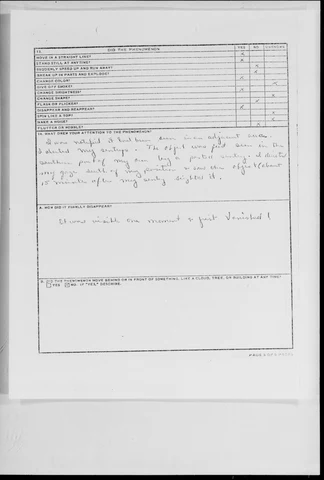 15. DID THE PHENOMENON YES NO UNKNOWN
MOVE IN A STRAIGHT LINE? X
STAND STILL AT ANYTIME? X
SUDDENLY SPEED UP AND RUN AWAY? X
BREAK UP IN PARTS AND EXPLODE? X
CHANGE COLOR? X
GIVE OFF SMOKE? X
CHANGE BRIGHTNESS? X
CHANGE SHAPE? X
FLASH OR FLICKER? X
DISAPPEAR AND REAPPEAR? X
SPIN LIKE A TOP? X
MAKE A NOISE? X
FLUTTER OR WOBBLE? X
16. WHAT DREW YOUR ATTENTION TO THE PHENOMENON?
I was notified it had been seen in an adjacent area.
I alerted my sentrys. The object was first seen in the
southern part of my area by a posted sentry. I directed
my gaze south of my position & saw the object (about
15 minutes after my sentry sighted it.
A. HOW DID IT FINALLY DISAPPEAR?
It was visible one moment & just Vanished!
B. DID THE PHENOMENON MOVE BEHIND OR IN FRONT OF SOMETHING, LIKE A CLOUD, TREE, OR BUILDING AT ANY TIME?
YES NO IF "YES," DESCRIBE.